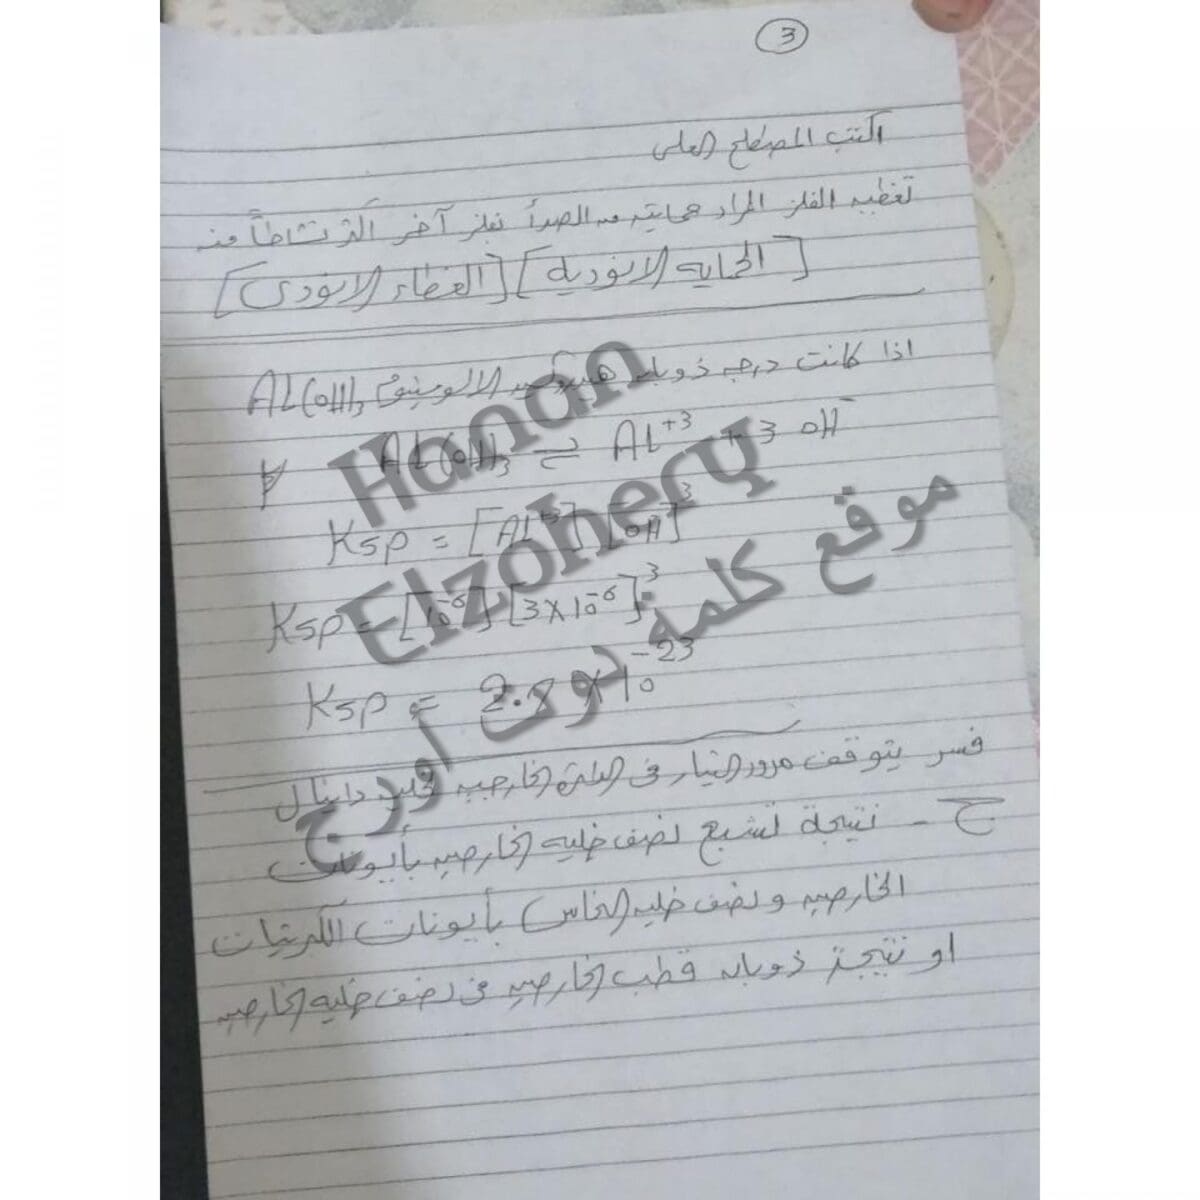 3
اكتب المصطلح العلمى
تغطيه الفلز المراد حمايته من الصدأ بفلز آخر أكثر نشاطاً منه
[الحمايه الانوديه] [الغطاء الانودى]
اذا كانت درجه ذوبانه هيدروكسيد الالومينيوم AL(OH)3
AL(OH)3 ⇌ AL+3 + 3 OH-
Ksp = [AL+3] [OH]3
Ksp = [10-6] [3X10-6]3
Ksp = 2.7 X10-23
فسر يتوقف مرور التيار فى الدائرة الخارجيه لخليه دانيال
ج - نتيجة تشبع نصف خليه الخارصين بأيونات
الخارصين ونصف خليه النحاس بأيونات الكبريتات
او نتيجة ذوبان قطب الخارصين فى نصف خليه الخارصين
Hanan
Elzohery
موقع كلمة دوت أورج